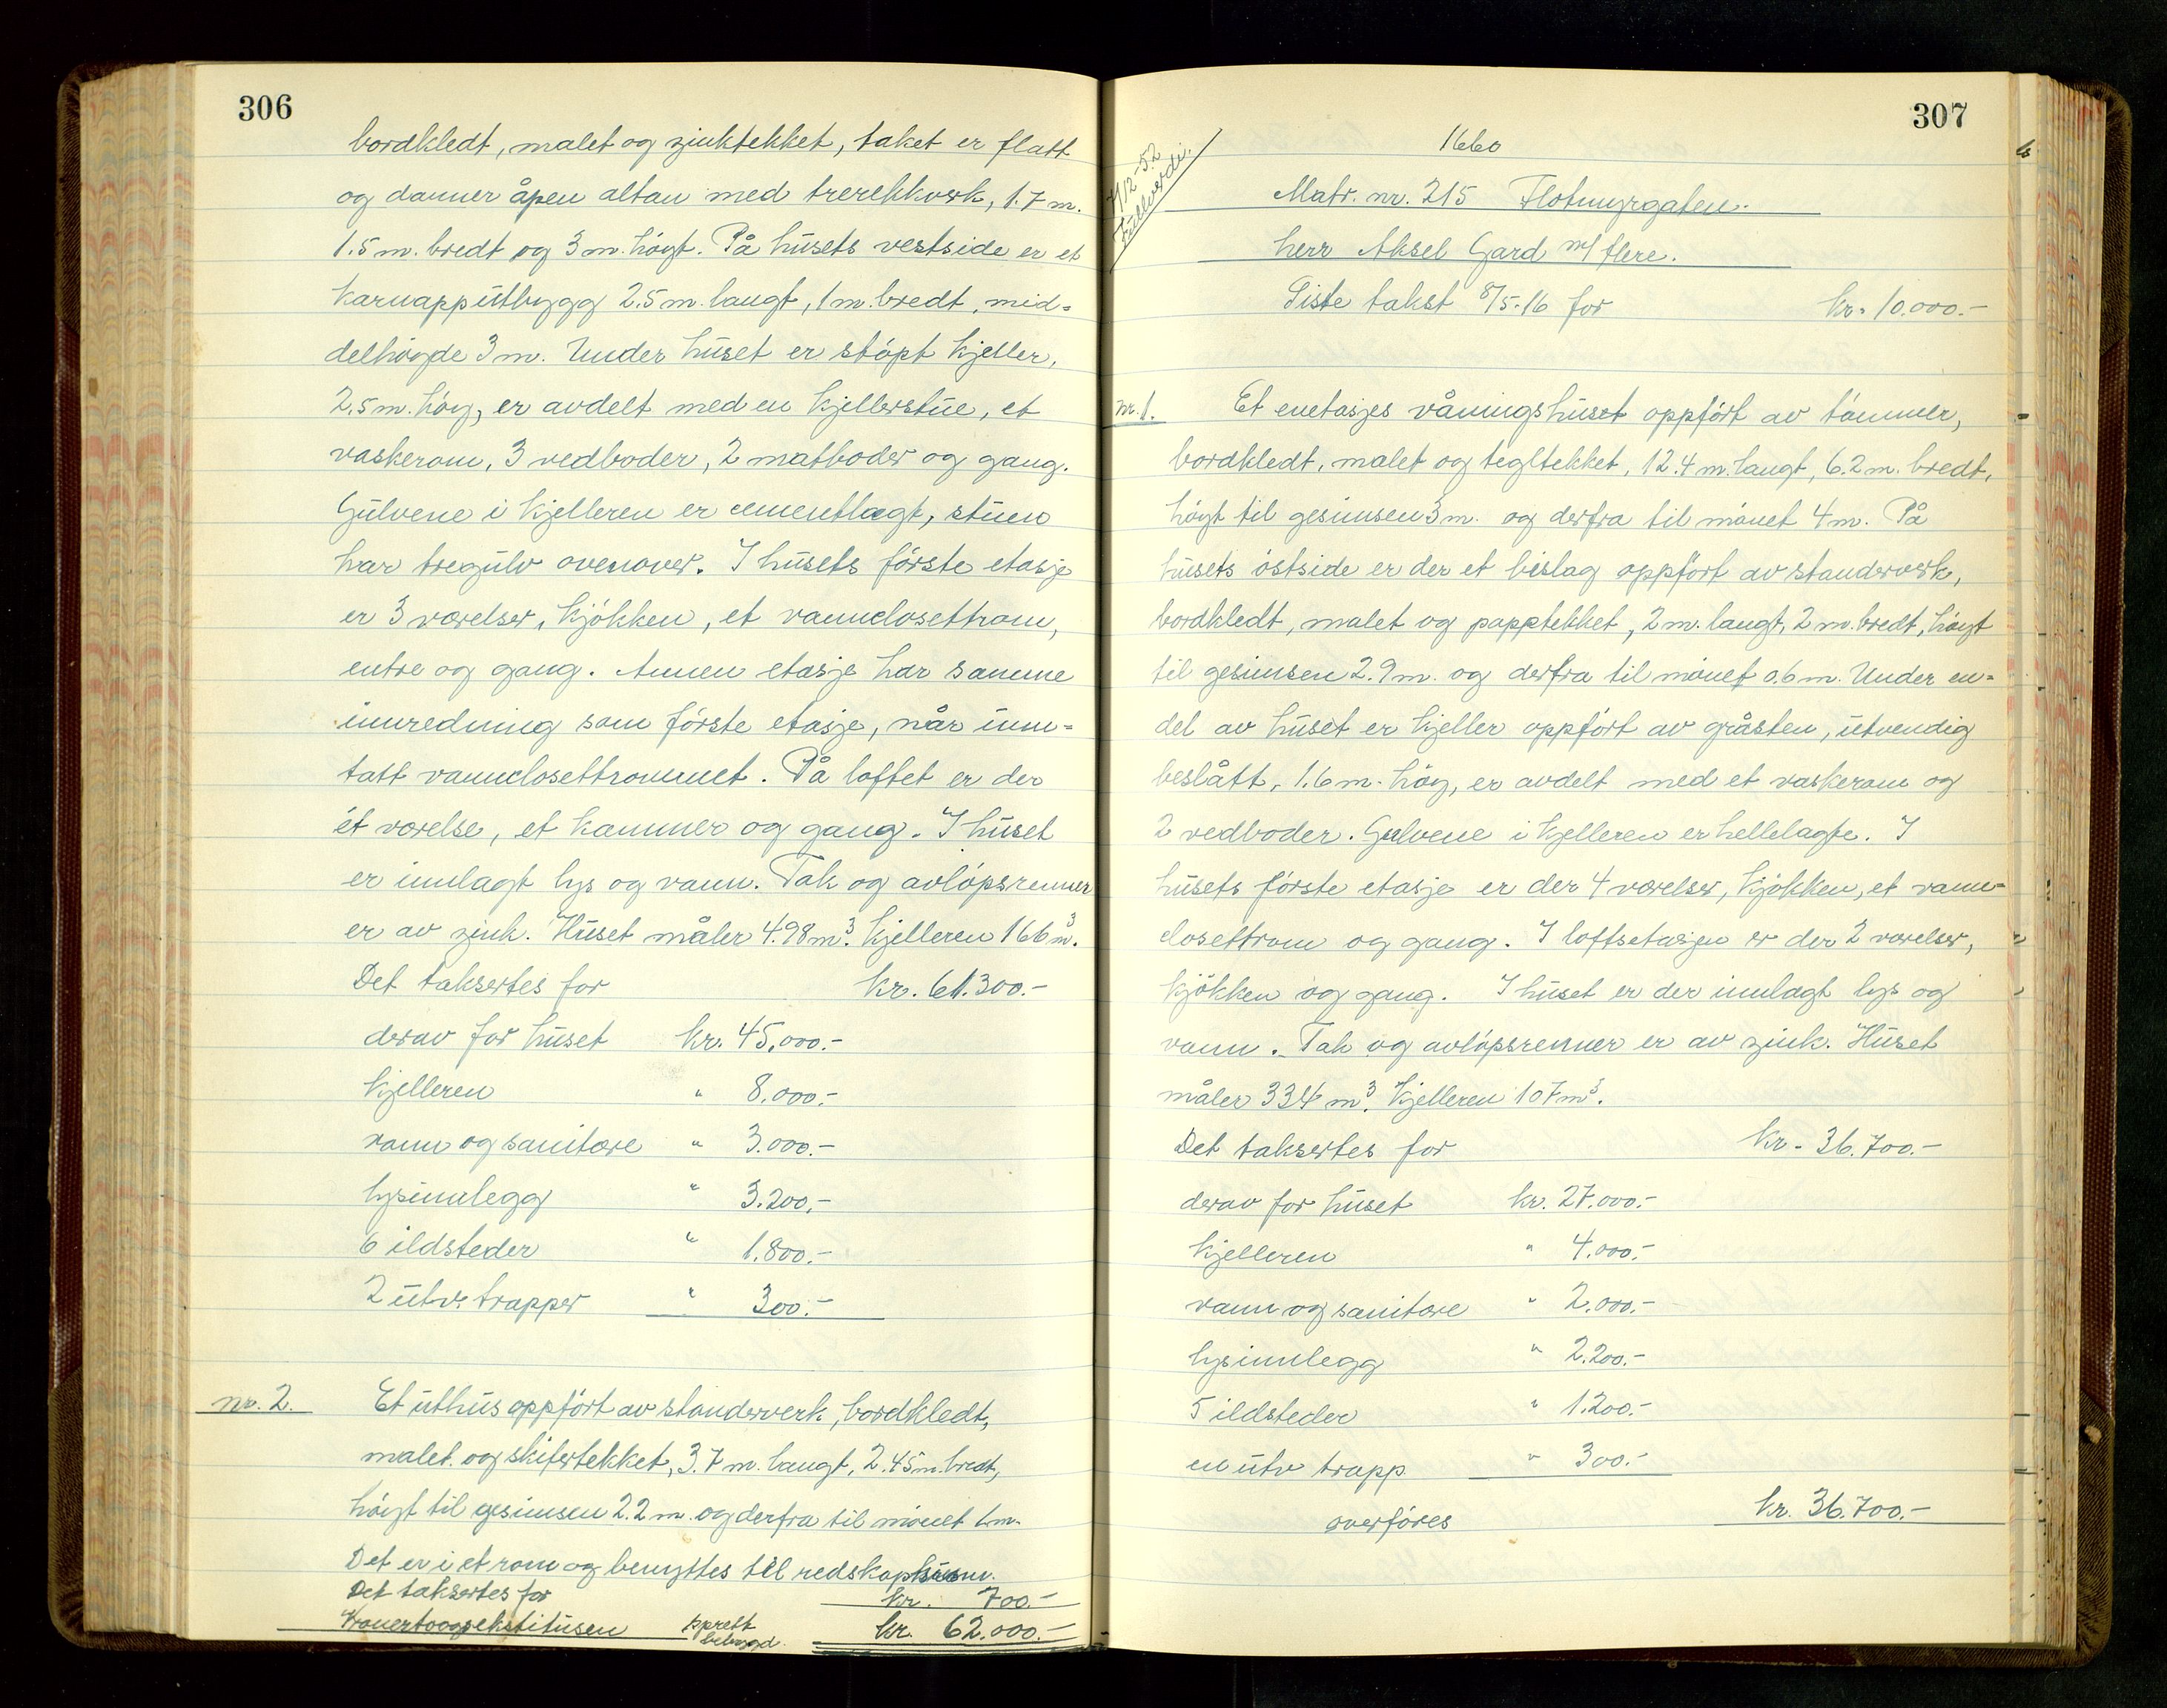 306
bordkledt, malet og zinktekket, taket er flatt
og danner åpen altan med trerekkverk, 1.7 m.
1.5 m. bredt og 3 m. höyt. På husets vestside er et
karnapputbygg 2.5 m. langt, 1 m. bredt, mid-
delhöyde 3 m. Under huset er stöpt kjeller,
2.5 m. höy, er avdelt med en kjellerstue, et
vaskerom, 3 vedboder, 2 matboder og gang.
Gulvene i kjelleren er cementlagt, stuen
har tregulv ovenover. I husets förste etasje
er 3 værelser, kjökken, et vannclosettrom,
entre og gang. Annen etasje har samme
innredning som förste etasje, når unn-
tatt vannclosettrommet. På loftet er der
ét værelse, et kammer og gang. I huset
er innlagt lys og vann. Tak og avlöpsrenner
er av zink. Huset måler 498 m³. Kjelleren 166 m³.
Det taksertes for kr. 61.300.-
derav for huset kr. 45.000.-
kjelleren " 8.000.-
vann og sanitære " 3.000.-
lysinnlegg " 3.200.-
6 ildsteder " 1.800.-
2 utv. trapper " 300.-
nr. 2. Et uthus oppfört av standerverk, bordkledt,
malet og skifertekket, 3.7 m. langt, 2.45 m. bredt,
höyt til gesimsen 2.2 m. og derfra til mönet 1 m.
Det er i et rom og benyttes til redskapsrom.
Det taksertes for kr. 700.-
kr. 62.000.-
307
1660
/12-52
Fullverdi.
Matr. nr. 215 Flotmyrgaten.
herr Aksel Gard m/ flere.
Siste takst 8/5-16 for kr. 10.000.-
nr. 1. Et enetasjes våningshuset oppfört av tömmer,
bordkledt, malet og tegltekket, 12.4 m. langt, 6.2 m. bredt,
höyt til gesimsen 3 m. og derfra til mönet 4 m. På
husets östside er der et bislag oppfört av standerverk,
bordkledt, malet og papptekket, 2 m. langt, 2 m. bredt, höyt
til gesimsen 2.9 m. og derfra til mönet 0.6 m. Under en-
del av huset er kjeller oppfört av gråsten, utvendig
beslått, 1.6 m. höy, er avdelt med et vaskerom og
2 vedboder. Gulvene i kjelleren er hellelagte. I
husets förste etasje er der 4 værelser, kjökken, et vann-
closettrom og gang. I loftsetasjen er der 2 værelser,
kjökken og gang. I huset er der innlagt lys og
vann. Tak og avlöpsrenner er av zink. Huset
måler 334 m³. Kjelleren 107 m³.
Det taksertes for kr. 36.700.-
derav for huset kr. 27.000.-
kjelleren " 4.000.-
vann og sanitære " 2.000.-
lysinnlegg " 2.200.-
5 ildsteder " 1.200.-
en utv trapp " 300.-
overföres kr. 36.700.-